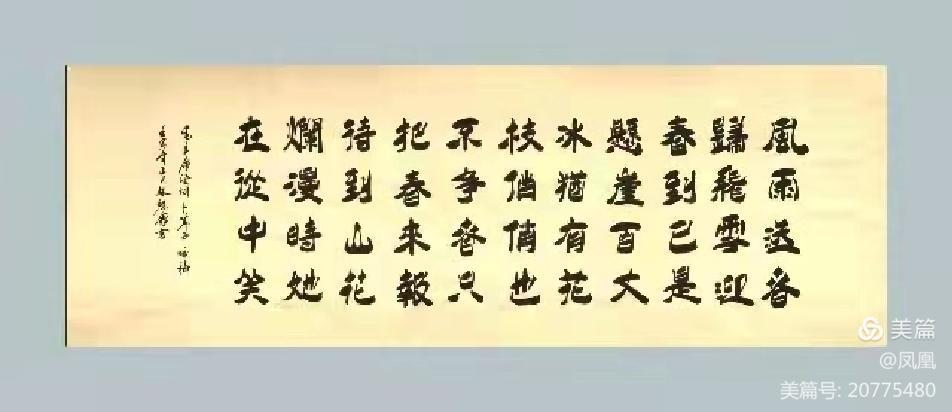 風雨送春
歸飛雪迎
春到已是
懸崖百丈
冰猶有花
枝俏俏也
不爭春只
把春來報
待到山花
爛漫時她
在從中笑
毛主席詩詞卜算子咏梅
美篇
@凤凰
美篇号: 20775480